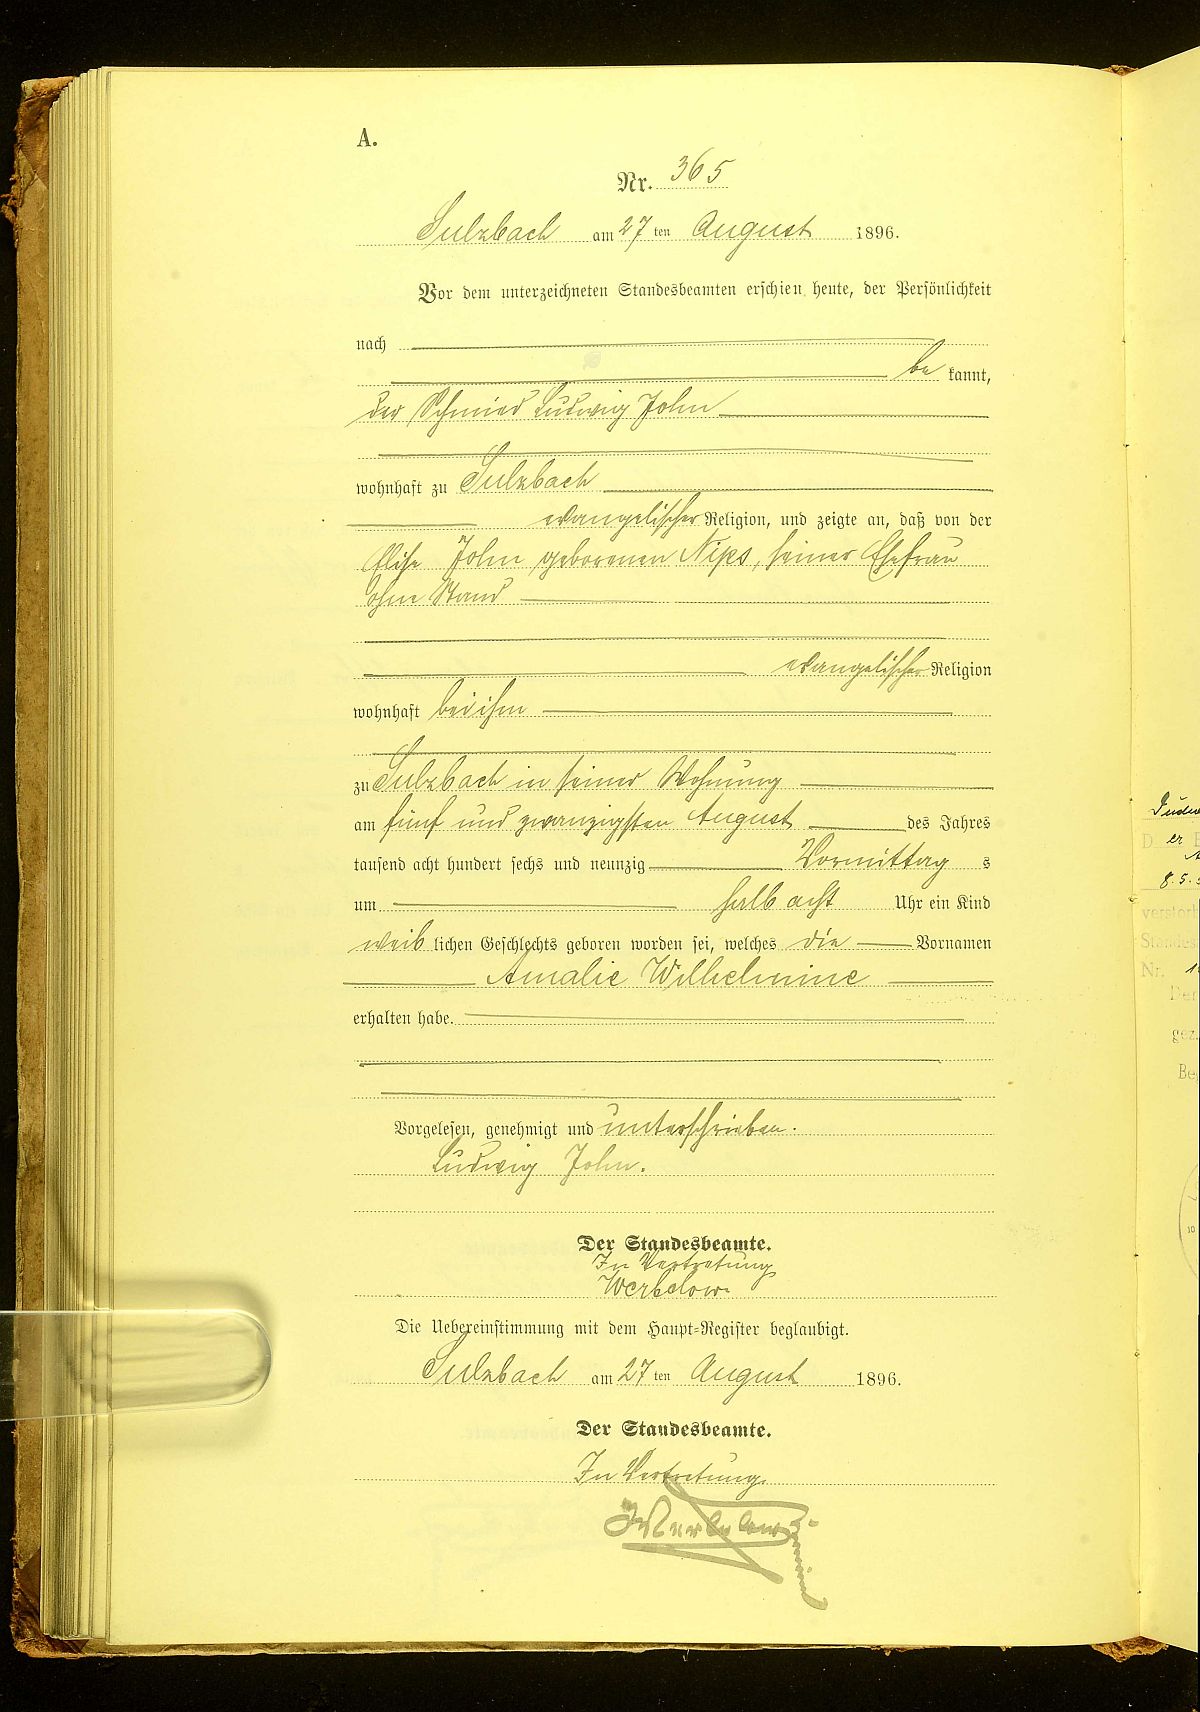 A.
Nr. 365
Sulzbach am 27 ten August 1896.
Vor dem unterzeichneten Standesbeamten erschien heute, der Persönlichkeit
nach
be kannt,
der Schmied Ludwig John
wohnhaft zu Sulzbach
evangelischer Religion, und zeigte an, daß von der
Elise John geborenen Nips, seiner Ehefrau
ohne Stand
evangelischer Religion
wohnhaft bei ihm
zu Sulzbach in seiner Wohnung
am fünf und zwanzigsten August des Jahres
tausend acht hundert sechs und neunzig Vormittag s
um halb acht Uhr ein Kind
weib lichen Geschlechts geboren worden sei, welches die Vornamen
Amalie Wilhelmine
erhalten habe.
Vorgelesen, genehmigt und unterschrieben.
Ludwig John.
Der Standesbeamte.
In Vertretung
Werbelow
Die Uebereinstimmung mit dem Haupt-Register beglaubigt.
Sulzbach am 27 ten August 1896.
Der Standesbeamte.
In Vertretung
Werbelow
D er
8.5.
verstorb
Standes
Nr. 1
Der
gez.
Be